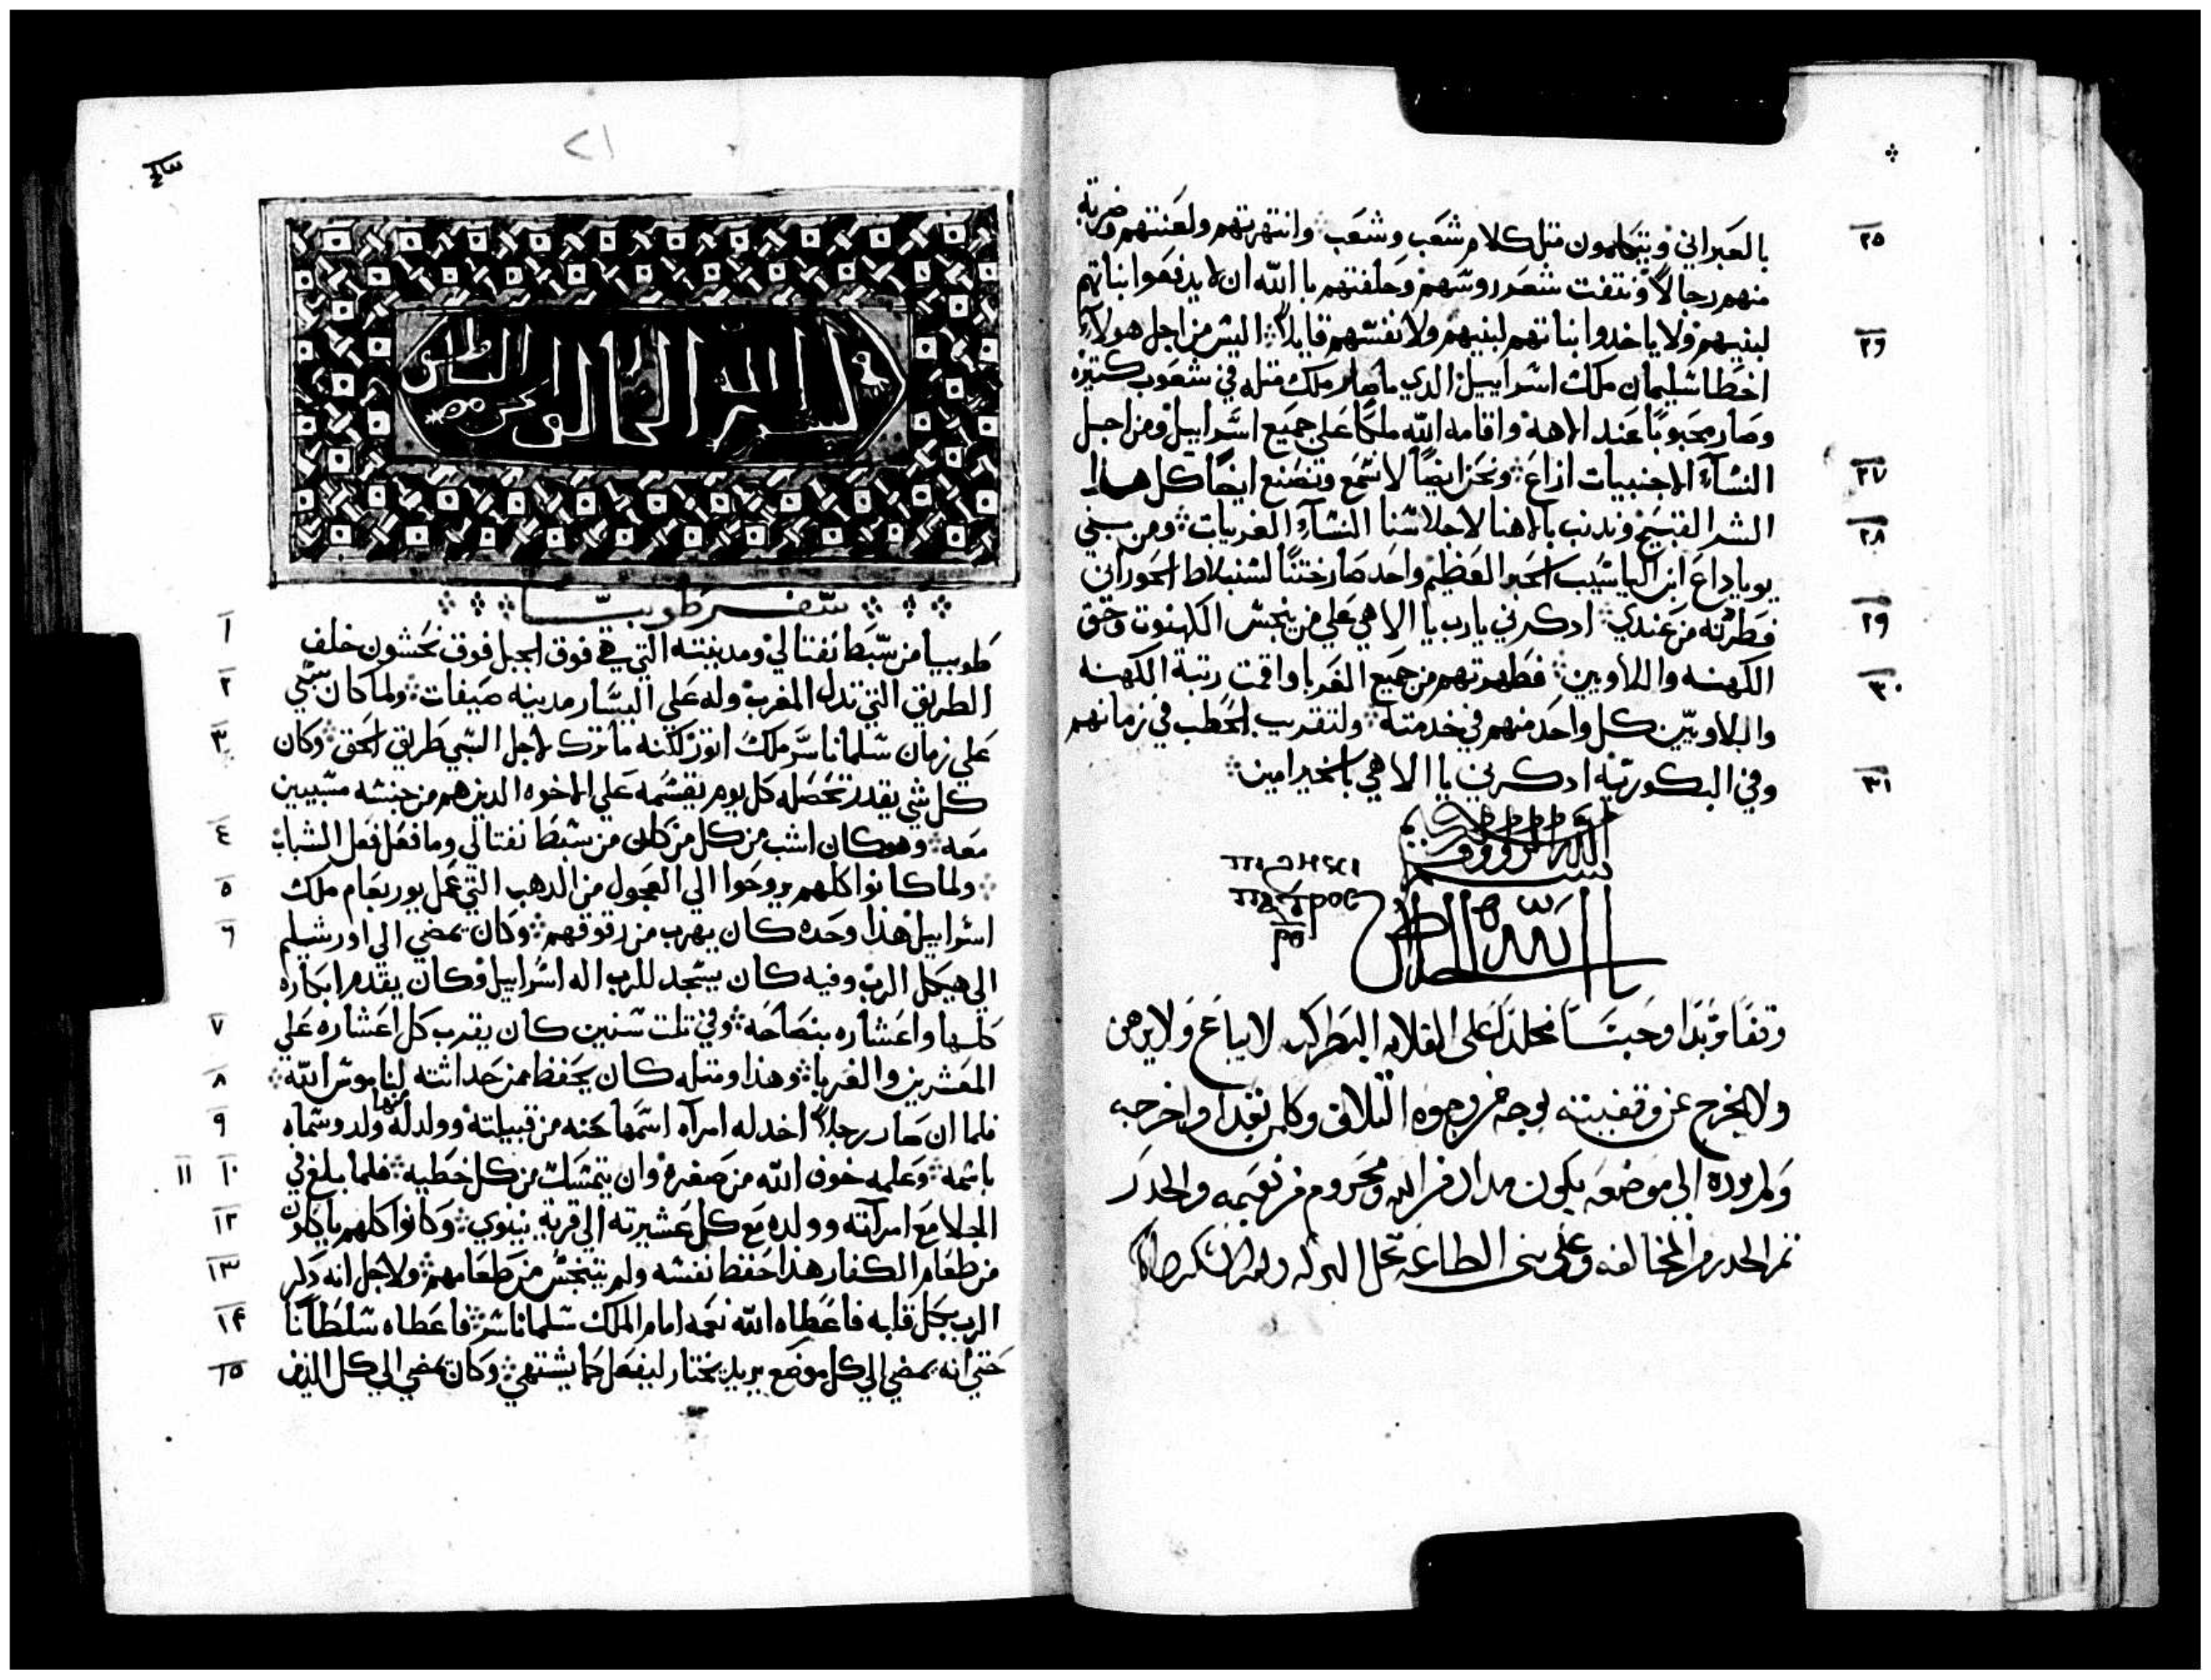 ٢٥
بالعبراني ويتكلمون متل كلام شعب وشعب ❖ وانتهرتهم ولعنتهم وضربة
منهم رجالاً ونتفت شعر روسهم وحلفتهم باالله ان لا يدفعوا بناتهم
٢٦
لبنيهم ولا ياخدوا بناتهم لبنيهم ولا نفسهم قايلاً ❖ اليس من اجل هولاء
اخطا سليمان ملك اسراييل الدي ما صار ملك متله في شعوب كتيره
وصار محبوبًا عند الاهه واقامه الله ملكًا علي جميع اسراييل ومن اجل
٢٧
النسآء الاجنبيات ازاغ ❖ ونحن ايضاً لا نسمع ونصنع ايضًا كل هدا
٢٨
الشر القبيح وندنب بالاهنا لاجلاسنا النسآء الغريبات ❖ ومن بني
يوياداع ابن الياشيب الحبر العظيم واحد صار ختنًا لسنبلاط الحوراني
٢٩
فطردته من عندي ❖ ادكرني يارب يا الاهي علي من ينجس الكهنوت وحق
٣٠
الكهنه واللاويين ❖ فطهرتهم من جميع الغربا واقمت رتبة الكهنه
واللاويّين كل واحد منهم في خدمته ❖ ولتقديب الحطب في زمانهم
٣١
وفي البكوريّه ادكرني يا الاهي بالخير امين ❖
بسم الله الروووف
يا الله الخلاص
وقفًا مؤبدا وحبسًا مخلدًا علي القلايه البطركيه لا يباع ولا يرهن
ولا يخرج عن وقفيته بوجه من وجوه التلاف وكلمن تعدا واخرجه
ولم يرده الي موضعه يكون مدان من الله ومحروم من نعيمه والحدر
تم الحدر من المخالفه وعلي بني الطاعه تحل البركه
٢١
بسم الله الرحمن الرحيم
❖ ❖ ❖ سفر طوبيا ❖ ❖ ❖
١
طوبيا من سبط نفتالي ومدينته التي هي فوق الجبل فوق نحشون خلف
٢
الطريق التي تدل المغرب وله علي اليسار مدينه صيفات ❖ ولما كان سبي
٣
علي زمان سلماناسر ملك اتور لكنه ما ترك لاجل السبي طريق الحق ❖ وكان
كل شي يقدر تحصله كل يوم يقسمه علي الاخوه الدين هم من جنسه مسبيين
٤
معه ❖ وهو كان اشب من كل من كان من سبط نفتالي وما فعل فعل الشباب
٥
❖ ولما كانوا كلهم يروحوا الي العجول من الدهب التي عمل يوربعام ملك
٦
اسراييل هذا وحده كان يهرب من رفوقهم ❖ وكان يمضي الي اورشليم
الي هيكل الرب وفيه كان يسجد للرب اله اسراييل وكان يقدم ابكاره
٧
كلها واعشاره بنصاحه ❖ وفي تلت سنين كان يقرب كل اعشاره علي
٨
المعشرين والغربا ❖ وهذا ومتله كان يحفظ من حداثته لناموس الله ❖
٩
فلما ان صار رجلاً اخد له امرآه اسمها حنه من قبيلته وولد له منها ولد وسماه
١٠ ١١
باسمه ❖ وعلمه خوف الله من صغره وان يتمسك من كل خطيه ❖ فلما بلغ في
١٢
الجلا مع امرآته وولده مع كل عشيرته الي قرية نينوي ❖ وكانوا كلهم ياكلون
١٣
من طعام الكفار هذا حفظ نفسه ولم يتنجس من طعامهم ❖ ولاجل انه دكر
١٤
الرب بكل قلبه فاعطاه الله نعمه امام الملك سلماناسر ❖ فاعطاه سلطانًا
١٥
حتي انه يمضي الي كل موضع يريد يختار ليفعل كما يشتهي ❖ وكان يمضي الي كل الذين